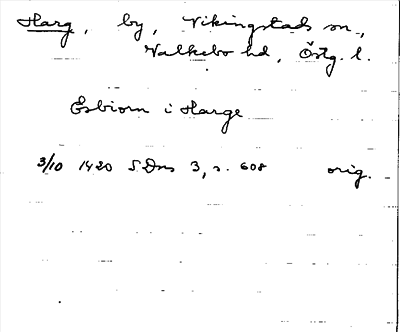 Harg, by, Vikingstads sn.,
Valkebo hd, Östg. l.
Esbiorn i Harge
3/10 1420 SDns 3, s. 608 orig.